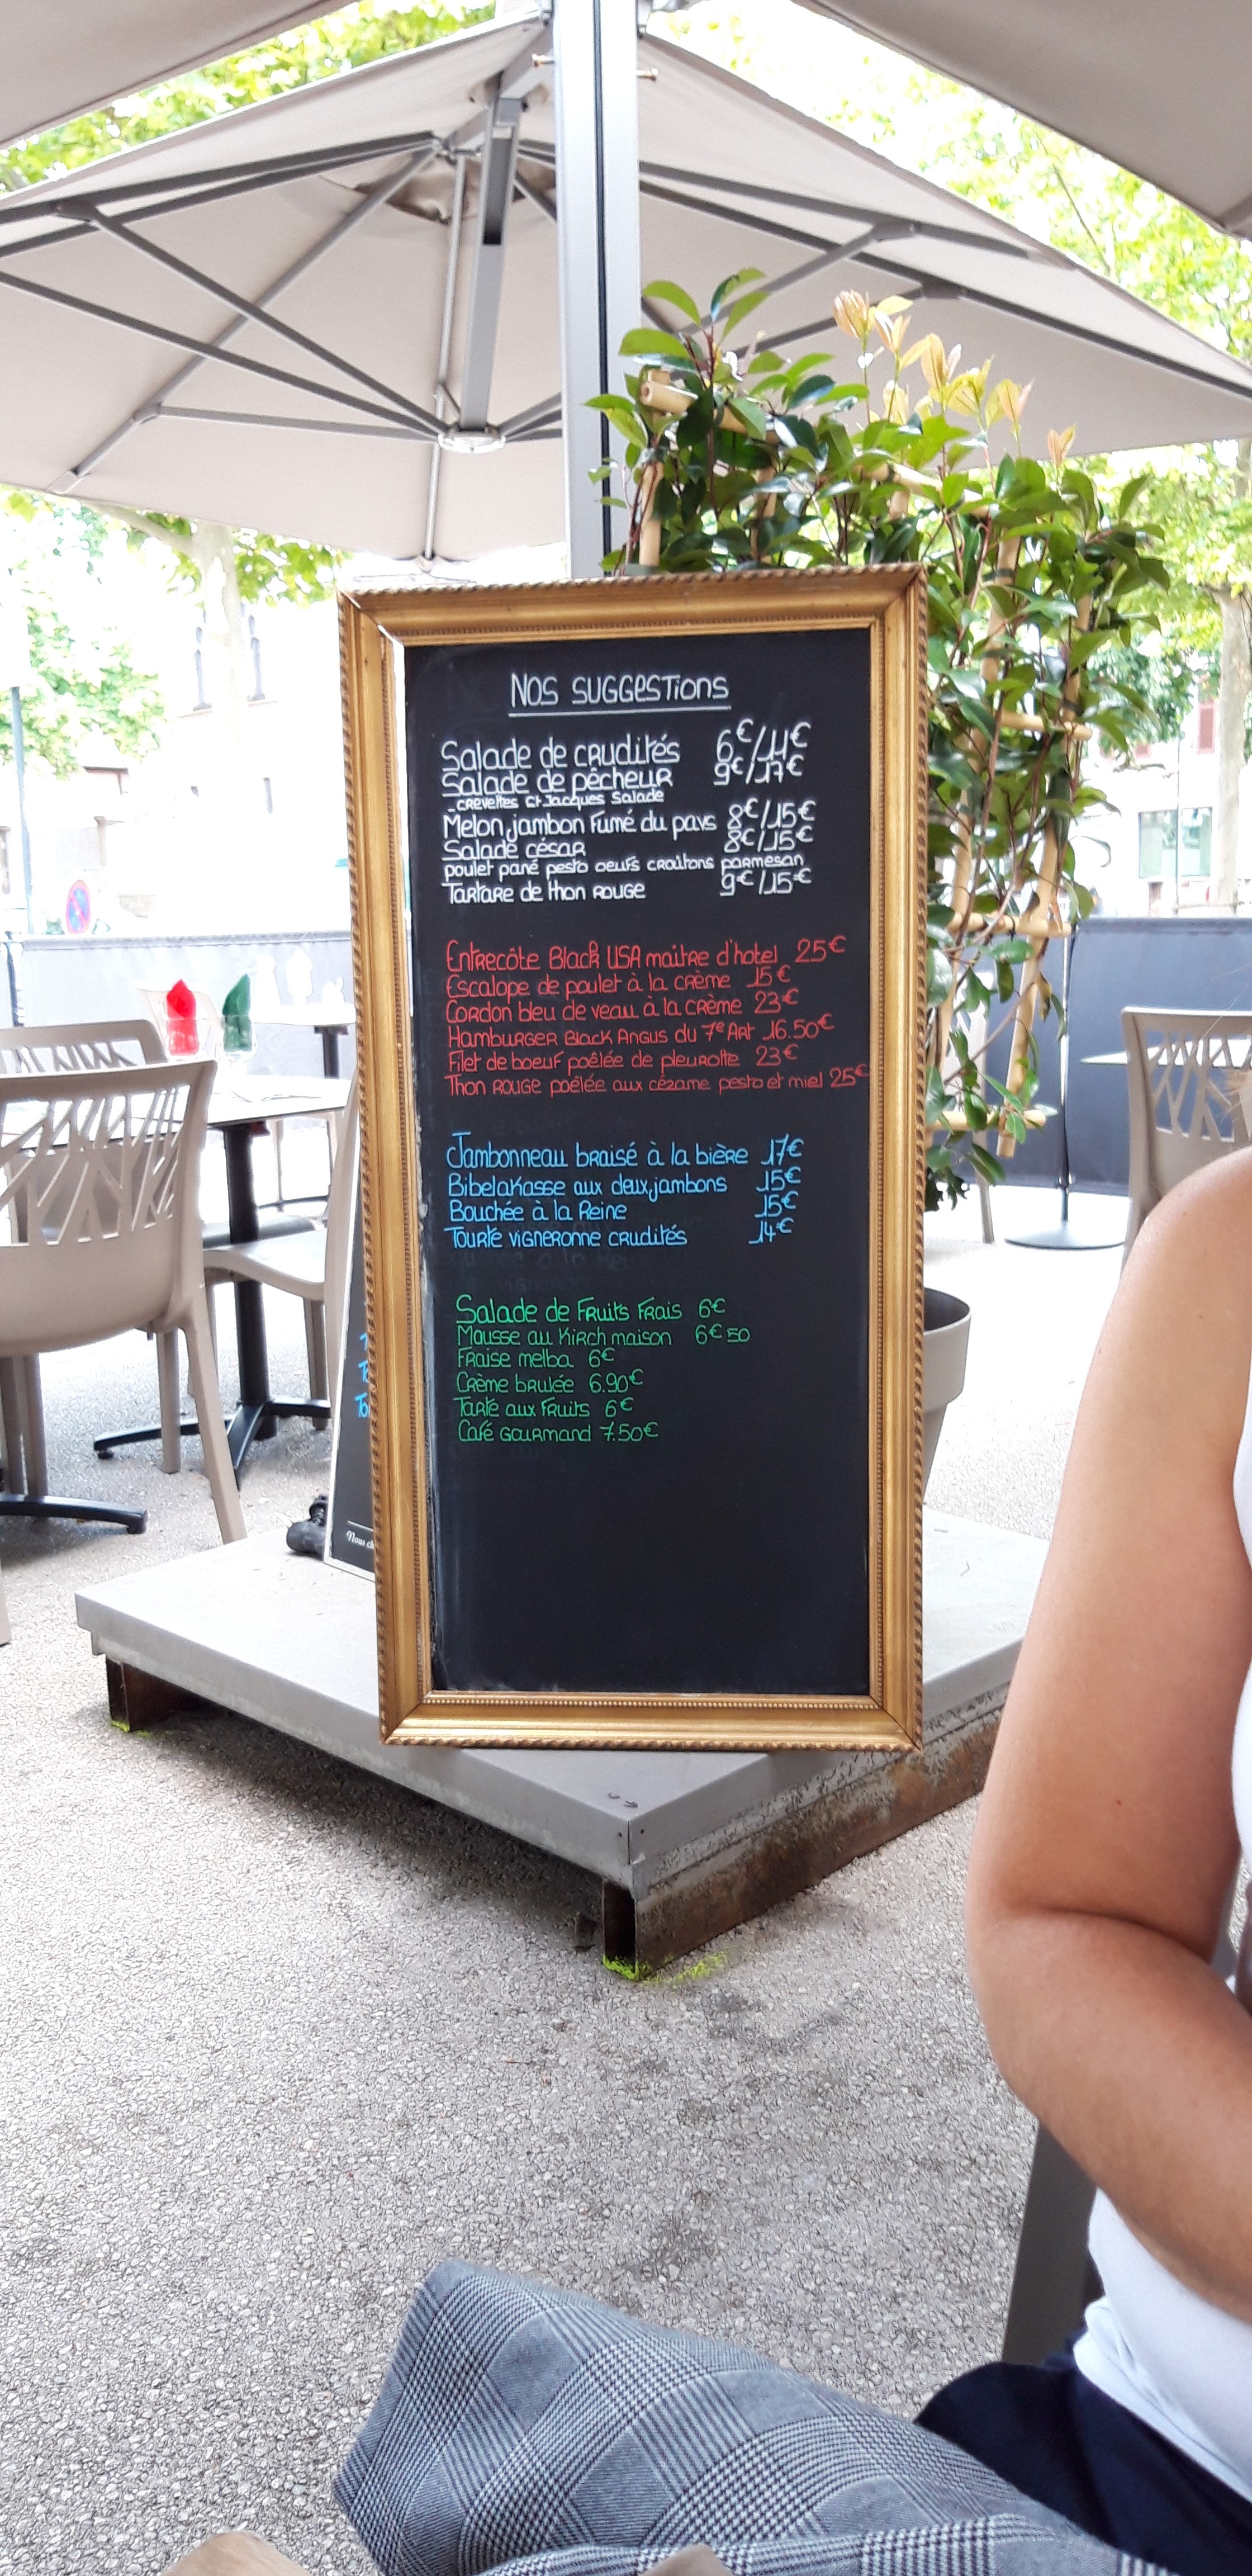 Nos suggestions
Salade de crudités 6€/11€
Salade de pêcheur 9€/17€
-crevettes St Jacques Salade
Melon jambon fumé du pays 8€/15€
Salade césar 8€/15€
poulet pané pesto oeufs croûtons parmesan
Tartare de thon rouge 9€/15€
Entrecôte Black USA maitre d'hotel 25€
Escalope de poulet à la crème 15€
Cordon bleu de veau à la crème 23€
Hamburger Black Angus du 7e Art 16.50€
Filet de boeuf poêlée de pleurotte 23€
Thon rouge poêlée aux cézame pesto et miel 25€
Jambonneau braisé à la bière 17€
Bibelakasse aux deux jambons 15€
Bouchée à la Reine 15€
Tourte vigneronne crudités 14€
Salade de Fruits Frais 6€
Mousse au Kirch maison 6€50
Fraise melba 6€
Crème brulée 6.90€
Tarte aux Fruits 6€
Café Gourmand 7.50€
Nous